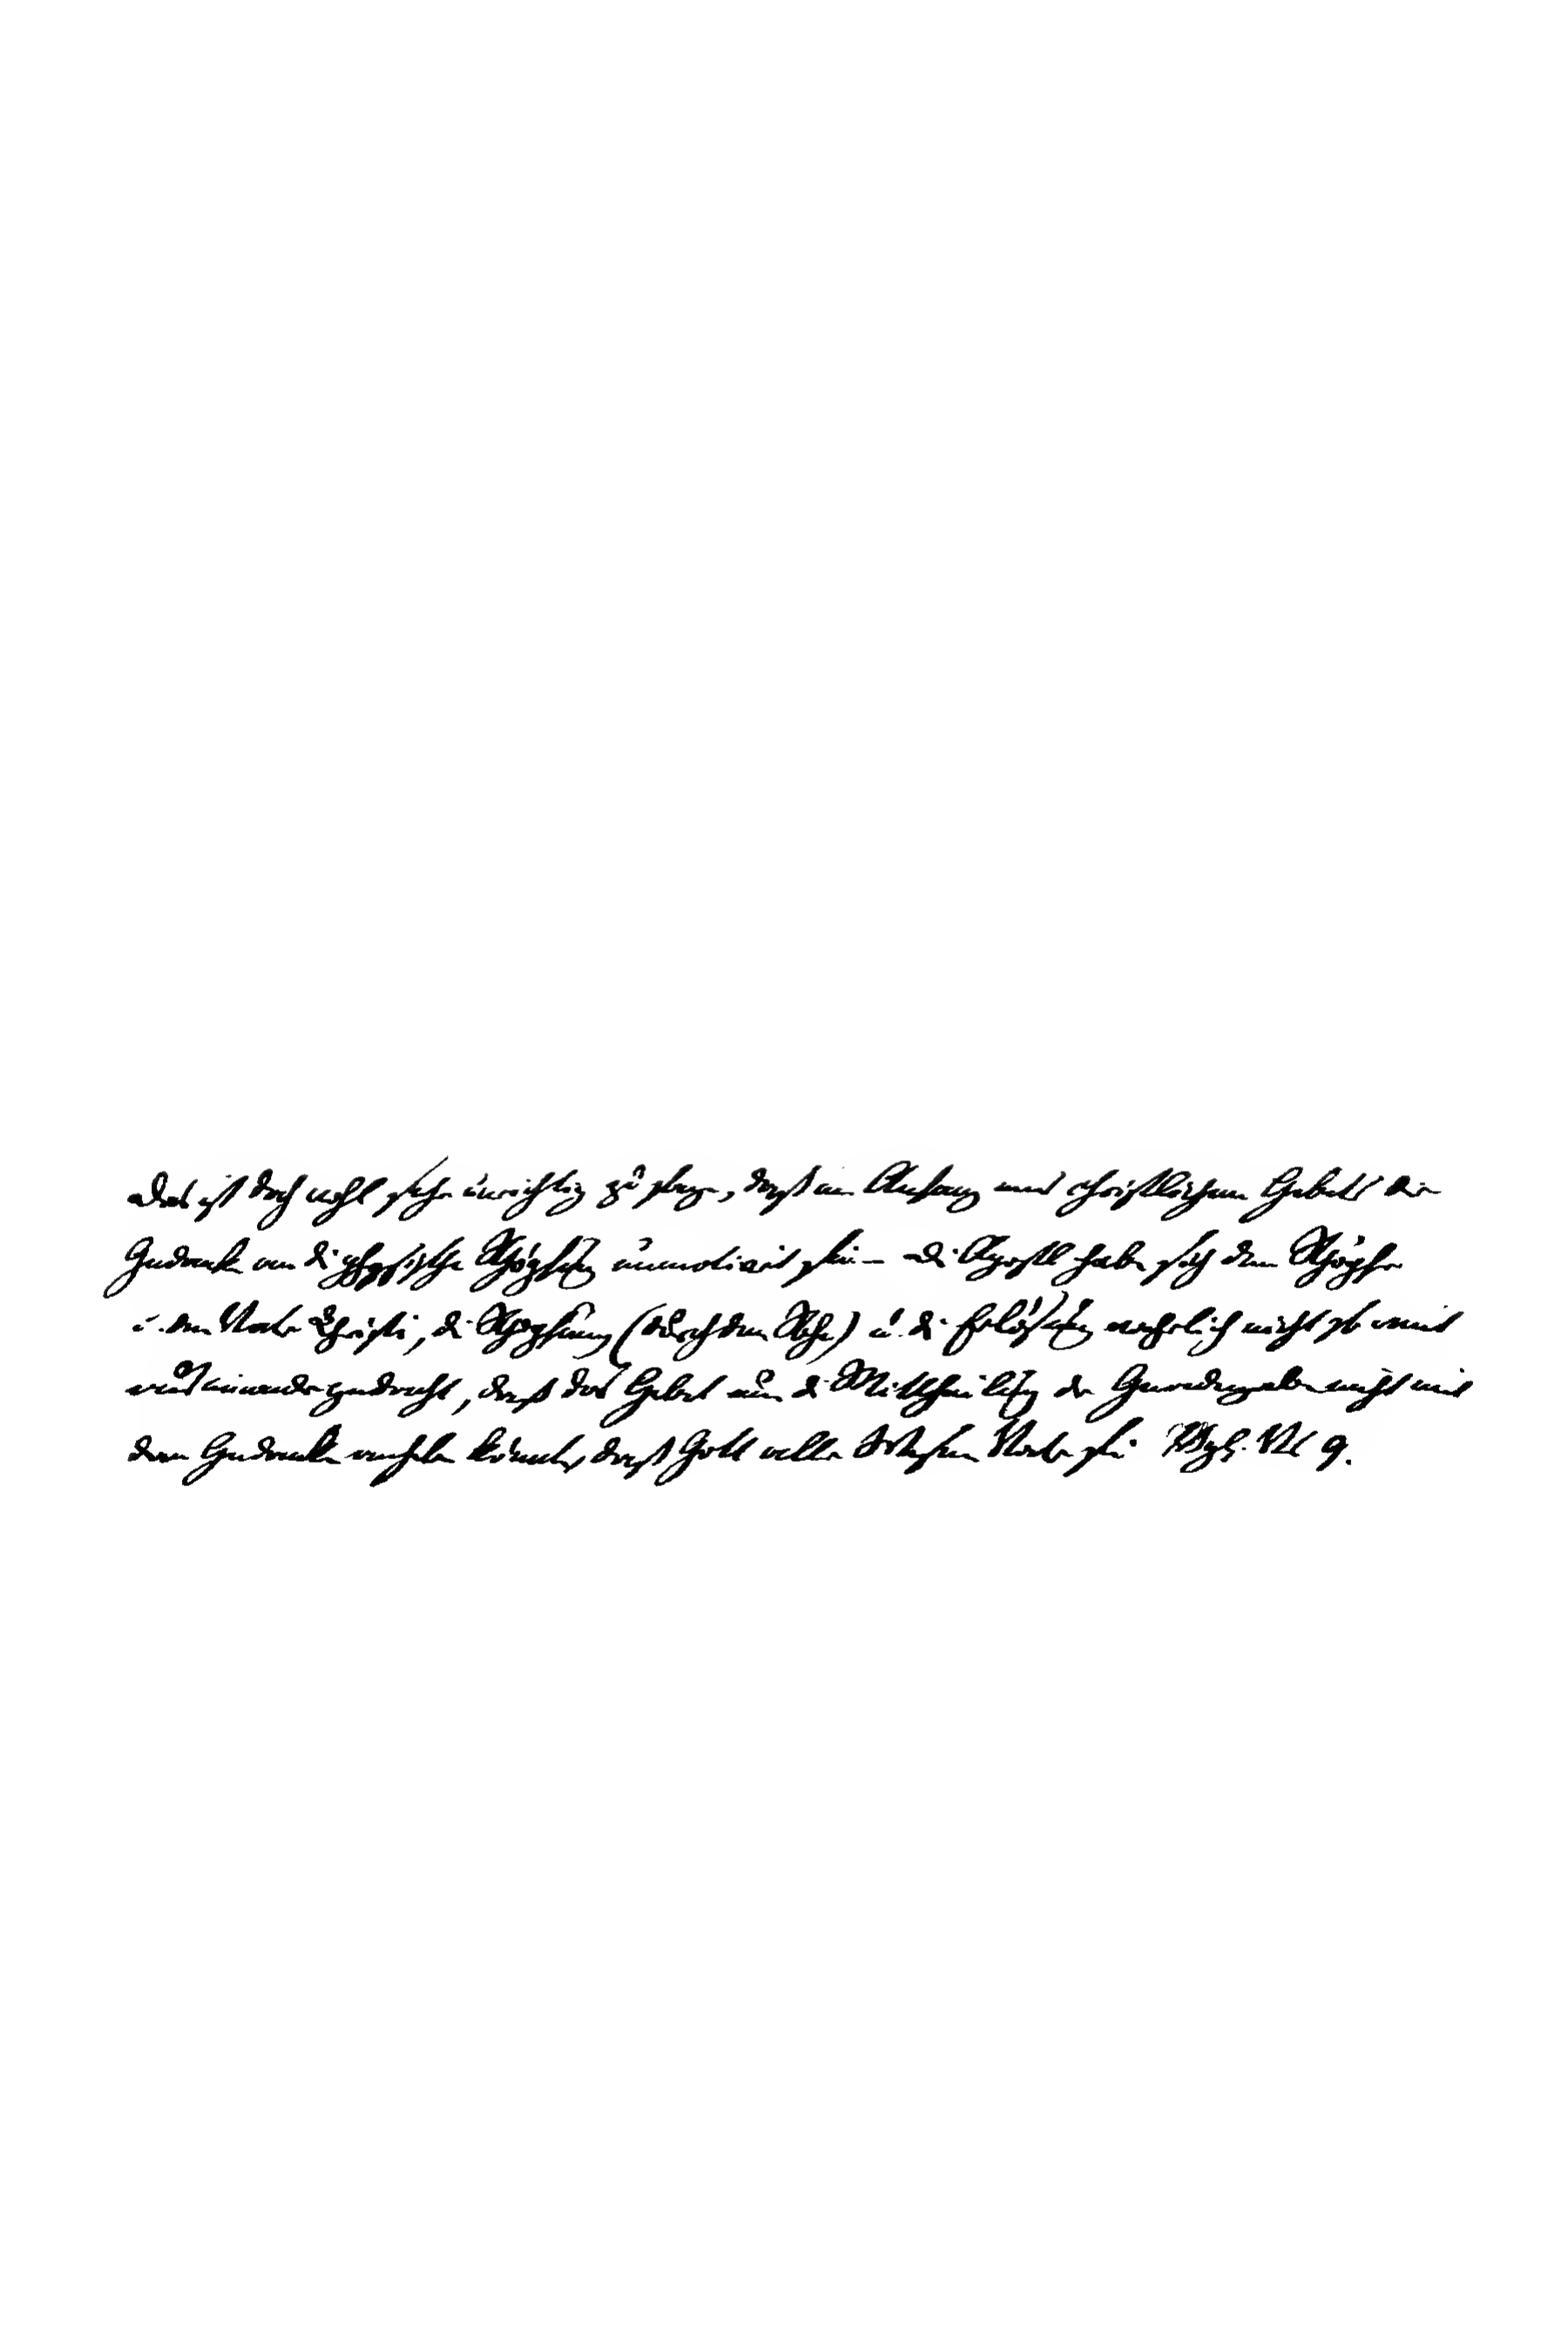 Das ist doch wohl sehr unrichtig zu sagen, daß am Anfang eines christlichen Gebets der
Gedanke an die physische Schöpfung unmotivirt sei – die Apostel haben sich den Schöpfer
u. den Vater Christi, die Schöpfung (durch den Sohn) u. die Erlösung wahrlich nicht so weit
auseinandergedacht, daß das Gebet um die Mittheilung der Gnadengaben nicht mit
dem Gedanken anheben könnte, daß Gott aller Wesen Vater sei. Vgl. Vs 9.